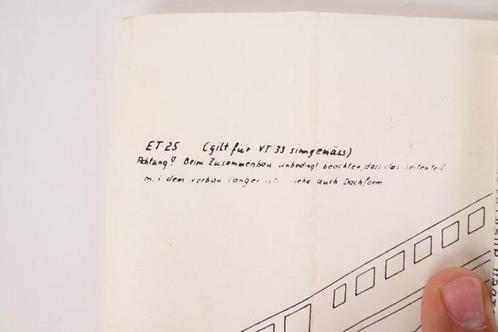 ET 25 (gilt für VT 33 sinngemäss)
Achtung! Beim Zusammenbau unbedingt beachten, dass das Seitenteil
mit dem Vorbau länger ist. siehe auch Dachform